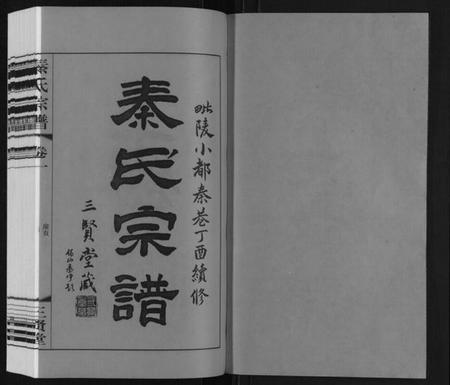 毗陵小都秦巷丁酉續修
秦氏宗譜
三賢堂藏
秦氏宗譜
卷一
三賢堂